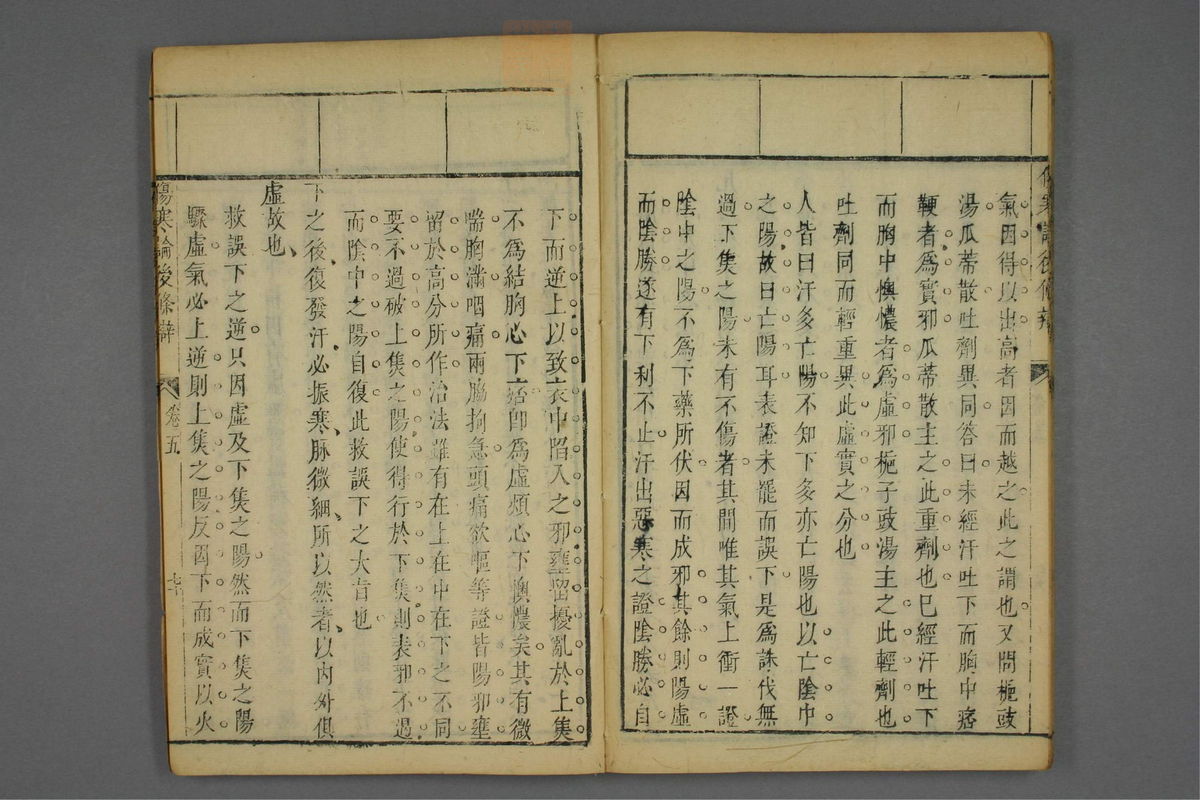 氣因得以出高者因而越之此之謂也又問梔豉
湯瓜蒂散吐劑異同答曰未經汗吐下而胸中痞
鞕者爲實邪瓜蒂散主之此重劑也已經汗吐下
而胸中懊憹者爲虛邪梔子豉湯主之此輕劑也
吐劑同而輕重異此虛實之分也
人皆曰汗多亡陽不知下多亦亡陽也以亡陰中
之陽故曰亡陽耳表證未罷而誤下是爲誅伐無
過下焦之陽未有不傷者其間唯其氣上衝一證
陰中之陽不爲下藥所伏因而成邪其餘則陽虛
而陰勝遂有下利不止汗出惡寒之證陰勝必自
下而逆上以致表中陷入之邪壅留擾亂於上焦
不爲結胸心下痞卽爲虛煩心下懊憹矣其有微
喘胸滿咽痛兩脇拘急頭痛欲嘔等證皆陽邪壅
留於高分所作治法雖有在上在中在下之不同
要不過破上焦之陽使得行於下焦則表邪不遏
而陰中之陽自復此救誤下之大旨也
下之後復發汗必振寒脉微細所以然者以内外俱
虛故也
救誤下之逆只因虛及下焦之陽然而下焦之陽
驟虛氣必上逆則上焦之陽反因下而成實以火
傷寒論後條辯
卷五
七